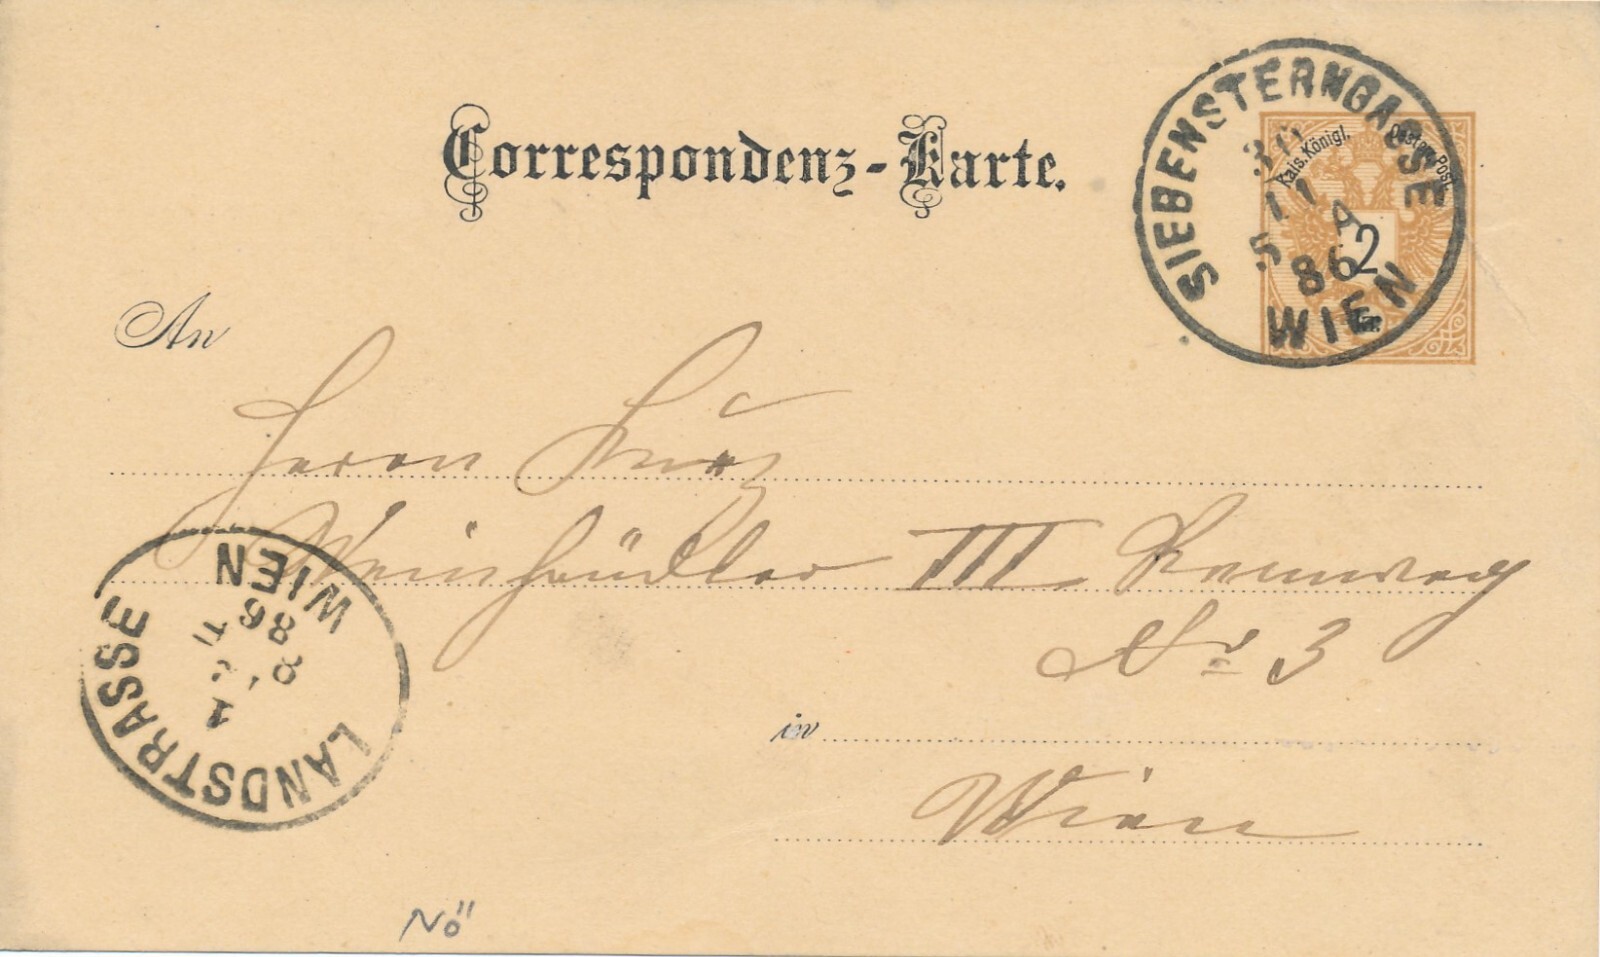 Correspondenz-Karte.
SIEBENSTERNGASSE
30
11 A
5 86
WIEN
Kais. Königl. Oesterr. Post.
2
Kr.
An
Herrn
Weinhändler III. Rennweg
No 3
in
Wien
LANDSTRASSE
1
86
WIEN
NÖ